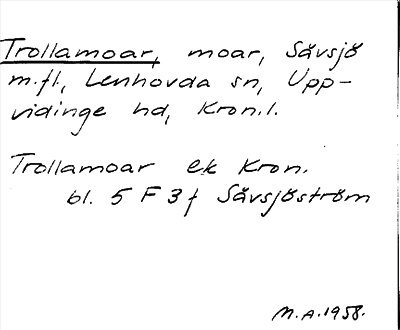 Trollamoar, moar, Sävsjö
m.fl., Lenhovda sn, Upp-
vidinge hd, Kron.l.
Trollamoar ek Kron.
bl. 5 F 3 f Sävsjöström
M.A. 1958.